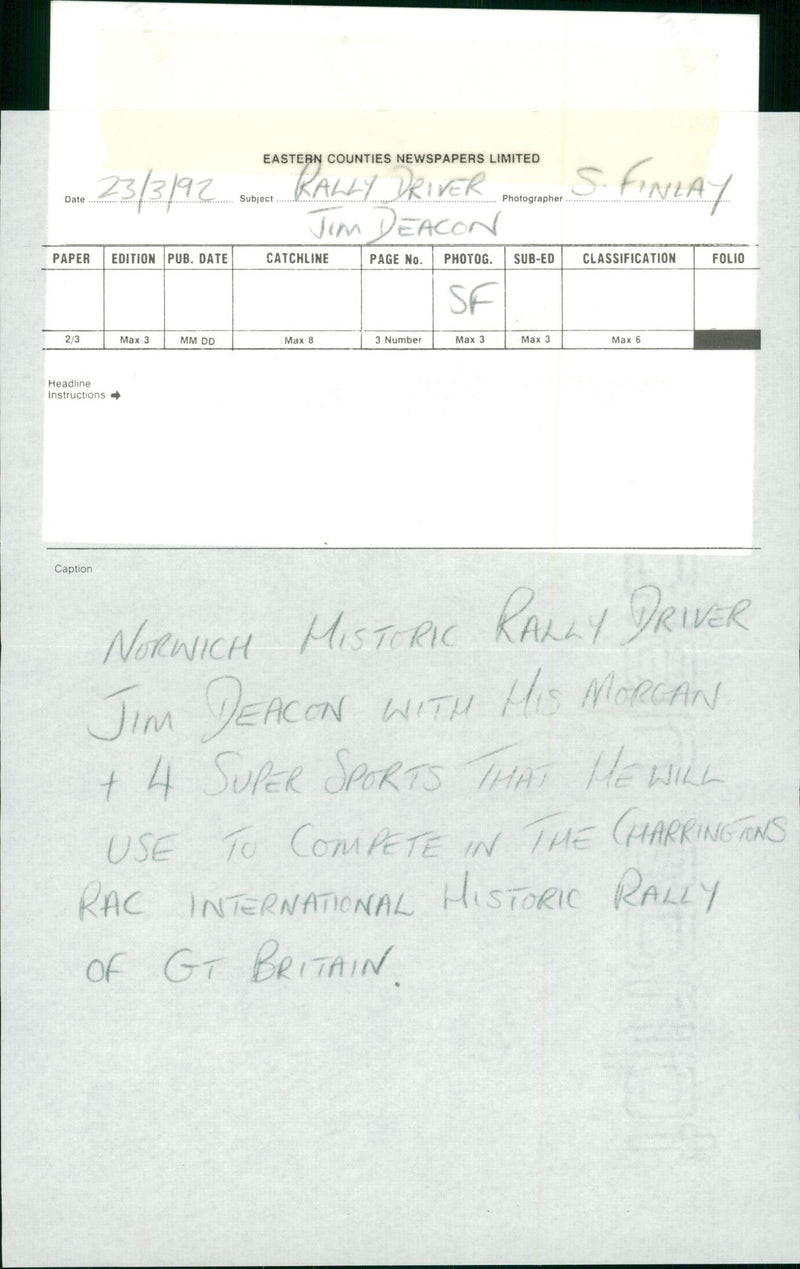 EASTERN COUNTIES NEWSPAPERS LIMITED
Date 23/3/92 Subject RALLY DRIVER Photographer S. FINLAY
JIM DEACON
PAPER EDITION PUB. DATE CATCHLINE PAGE No. PHOTOG. SUB-ED CLASSIFICATION FOLIO
SF
2/3 Max 3 MM DD Max 8 3 Number Max 3 Max 3 Max 6
Headline
Instructions ➔
Caption
NORWICH HISTORIC RALLY DRIVER
JIM DEACON WITH HIS MORGAN
+ 4 SUPER SPORTS THAT HE WILL
USE TO COMPETE IN THE CHARRINGTONS
RAC INTERNATIONAL HISTORIC RALLY
OF GT BRITAIN.